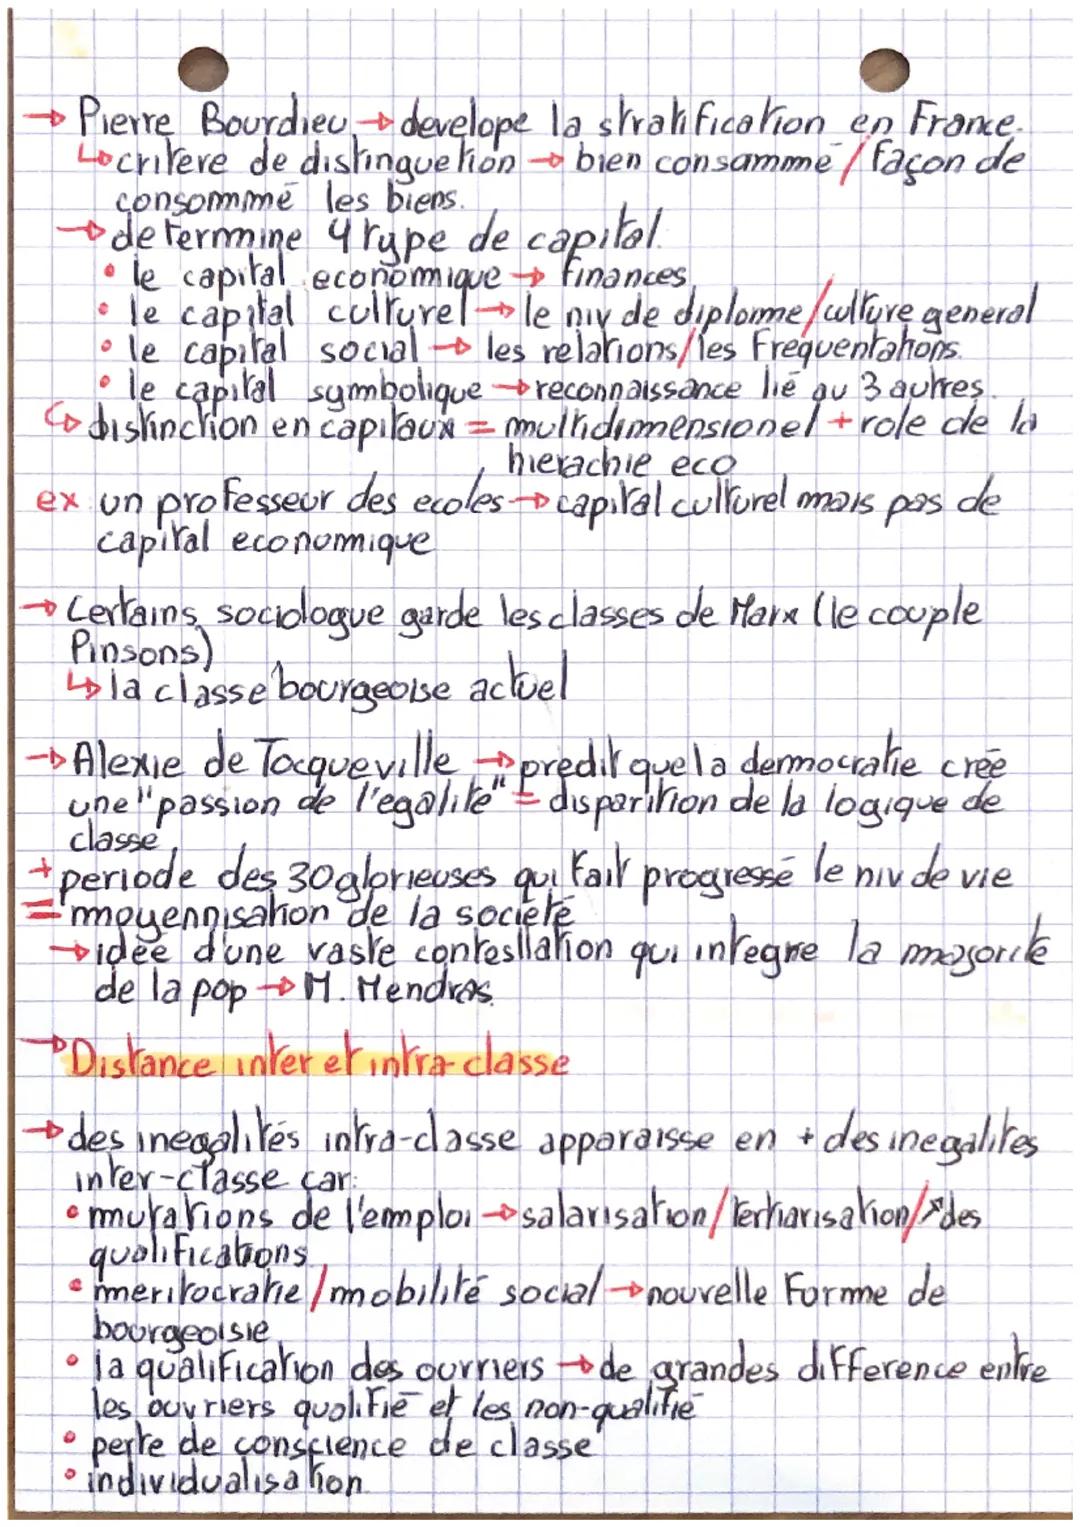 → Pierre Bourdieu → develope la stratification en France.
↳ critere de distinguetion → bien consammé / façon de
consommé les biens.
→ determine 4 type de capital.
• le capital economique → finances
• le capital culturel → le niv de diplome/culture general
• le capital social → les relations/les frequentations.
• le capital symbolique → reconnaissance lié au 3 autres.
↳ distinction en capitaux = multidimensionel + role de la
hierachie eco
ex: un professeur des ecoles → capital culturel mais pas de
capital economique
→ Certains sociologue garde les classes de Marx (le couple
Pinsons)
↳ la classe bourgeoise actuel
→ Alexie de Tocqueville → predit que la democratie crée
une "passion de l'egalité" = disparition de la logique de
classe
+ periode des 30 glorieuses qui fait progressé le niv de vie
= moyennisation de la société
→ idée d'une vaste contestlation qui integre la majorité
de la pop → M. Mendras.
→ Distance inter et intra-classe
→ des inegalités intra-classe apparaisse en + des inegalites
inter-classe car:
• mutations de l'emploi → salarisation/tertiarisation/↗des
qualifications.
• meritocratie/mobilité social → nouvelle forme de
bourgeoisie
• la qualification des ouvriers → de grandes difference entre
les ouvriers qualifié et les non-qualifié
• perte de conscience de classe
• individualisation.